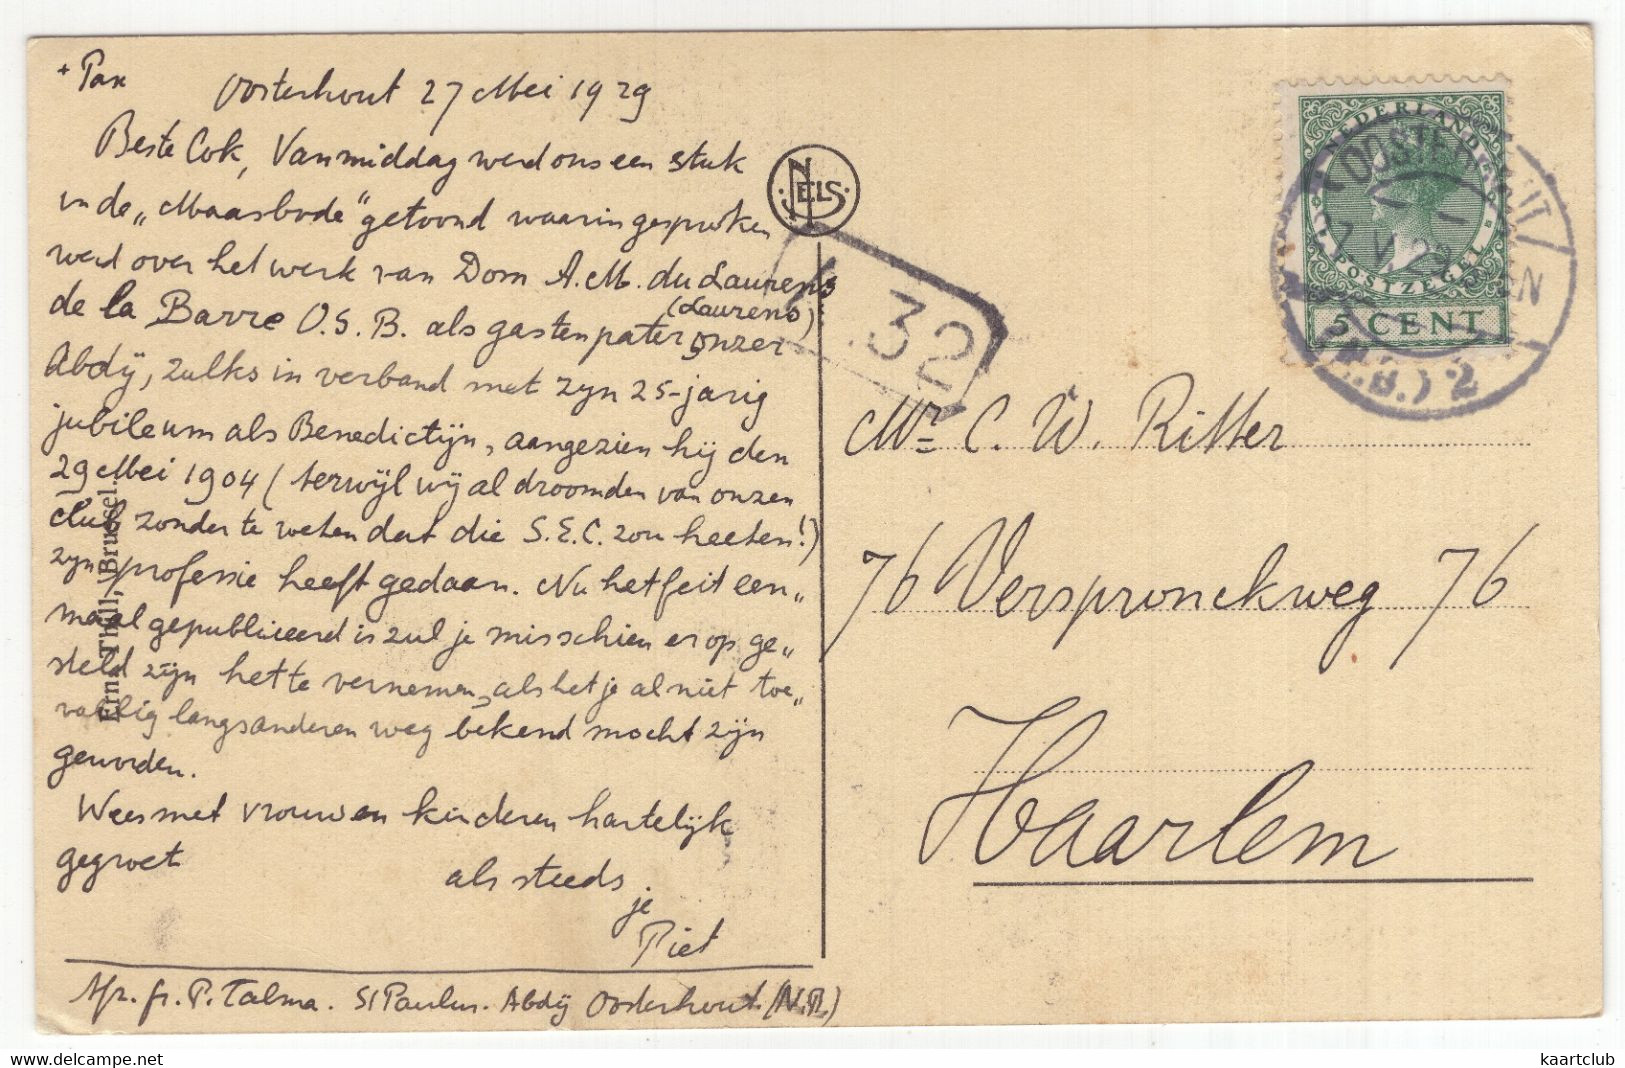 + Pax
Oosterhout 27 Mei 1929
Beste Cok, Vanmiddag werd ons een stuk
in de „Maasbode" getoond waarin gesproken
werd over het werk van Dom A.M. du Laurens
de la Barre O.S.B. als gastenpater onzer
(Laurens)
Abdij, zulks in verband met zijn 25-jarig
jubileum als Benedictijn, aangezien hij den
29 Mei 1904 (terwijl wij al droomden van onzen
club zonder te weten dat die S.E.C. zou heeten!)
zijn professie heeft gedaan. Nu het feit een„
maal gepubliceerd is zul je misschien er op ge„
steld zijn het te vernemen, als het je al niet toe„
vallig langs anderen weg bekend mocht zijn
geworden.
Wees met vrouw en kinderen hartelijk
gegroet
als steeds
je
Piet
Afz. fr. P. Talma. St Paulus. Abdij Oosterhout (N.B.)
Ern. Thill, Bruxelles
NELS
32
NEDERLAND
POSTZEGEL
5 CENT
OOSTERHOUT
7 V. 29
(N.B.) 2
Mr C. W. Ritter
76 Verspronckweg 76
Haarlem
www.delcampe.net
kaartclub